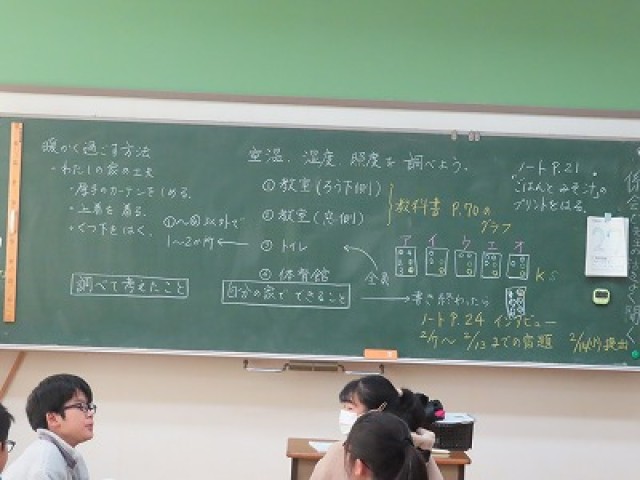 暖かく過ごす方法
・わたしの家の工夫
・厚手のカーテンをしめる。
・上着を着る。
・くつ下をはく。
調べて考えたこと
空温、湿度、照度を調べよう。
①教室(ろう下側)
②教室(窓側)
③トイレ
④体育館
①〜④以外で
1〜2か所
自分の家でできること
全員
教科書 P.70の
グラフ
ア イ ウ エ オ
KS
書き終わったら
ノート P.24 インタビュー
2/7〜2/13までの宿題
2/14(月)提出
ノート P.21
「ごはんとみそ汁」の
プリントをはる。